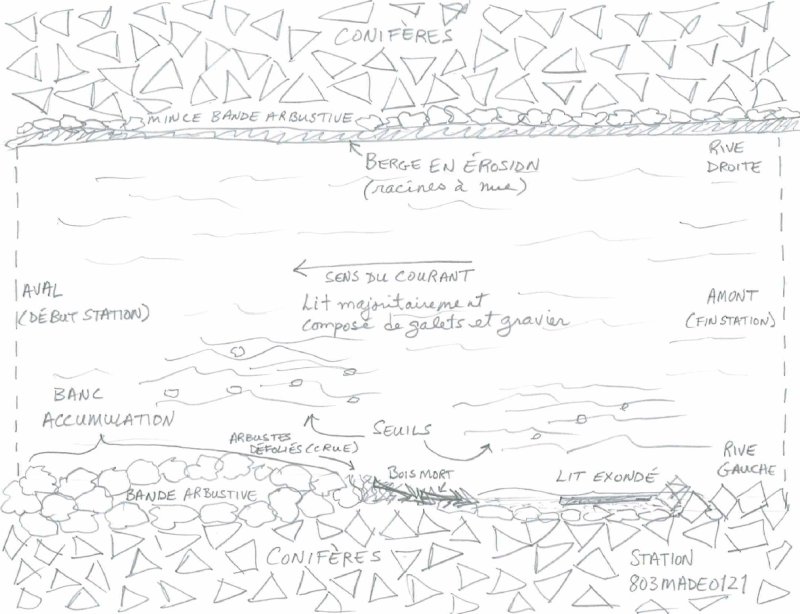 CONIFÈRES
MINCE BANDE ARBUSTIVE
BERGE EN ÉROSION
(racines à nue)
RIVE
DROITE
SENS DU COURANT
Lit majoritairement
composé de galets et gravier
AVAL
(DÉBUT STATION)
AMONT
(FIN STATION)
BANC
ACCUMULATION
ARBUSTES
DÉFOLIÉS (CRUE)
SEUILS
BOIS MORT
LIT EXONDÉ
RIVE
GAUCHE
BANDE ARBUSTIVE
CONIFÈRES
STATION
803MADE0121